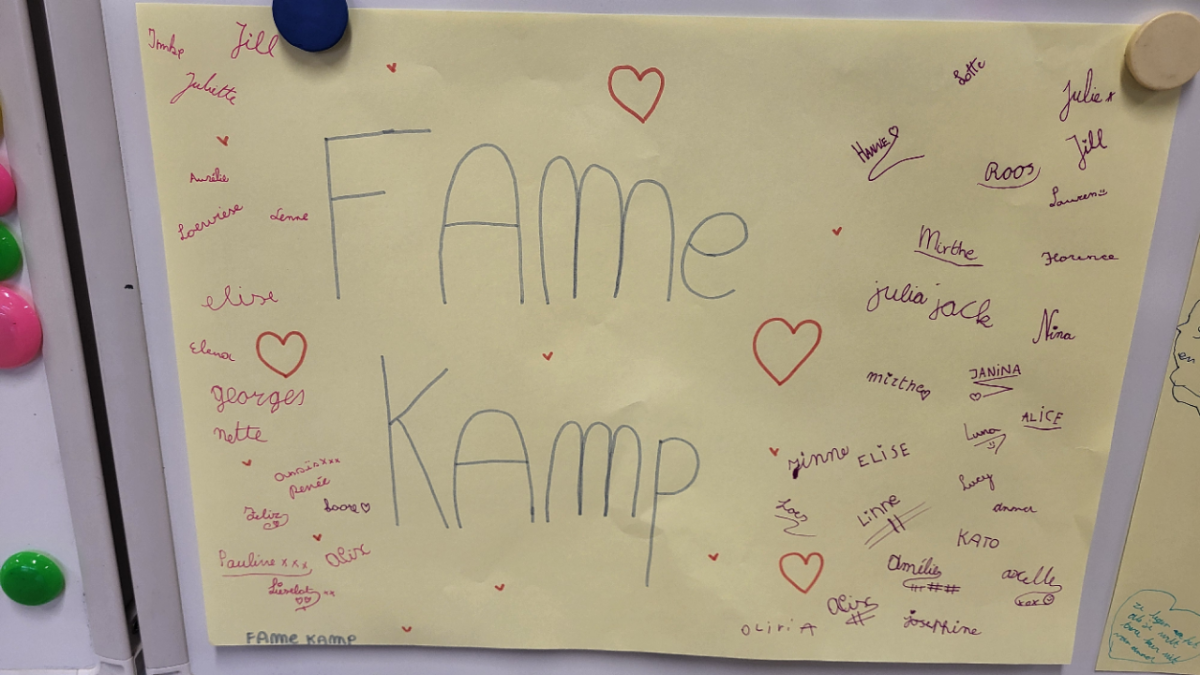 Imke
Jill
Juliette
Aurélie
Lenne
elise
Elena
georges
nette
anaïs xxx
Renée
Felix
Loore
Pauline xxx
Alix
Liselot xx
FAme KAmp
FAme
KAmp
Lotte
Julie x
HANNE
Jill
ROOS
Lauren
Mirthe
Florence
julia jack
Nina
mirthe
JANINA
ALICE
Luna
jinne
ELISE
Lucy
Loes
Linne
anna
KATO
Amélie
axelle
xox
Alix
Josephine
OLIVIA